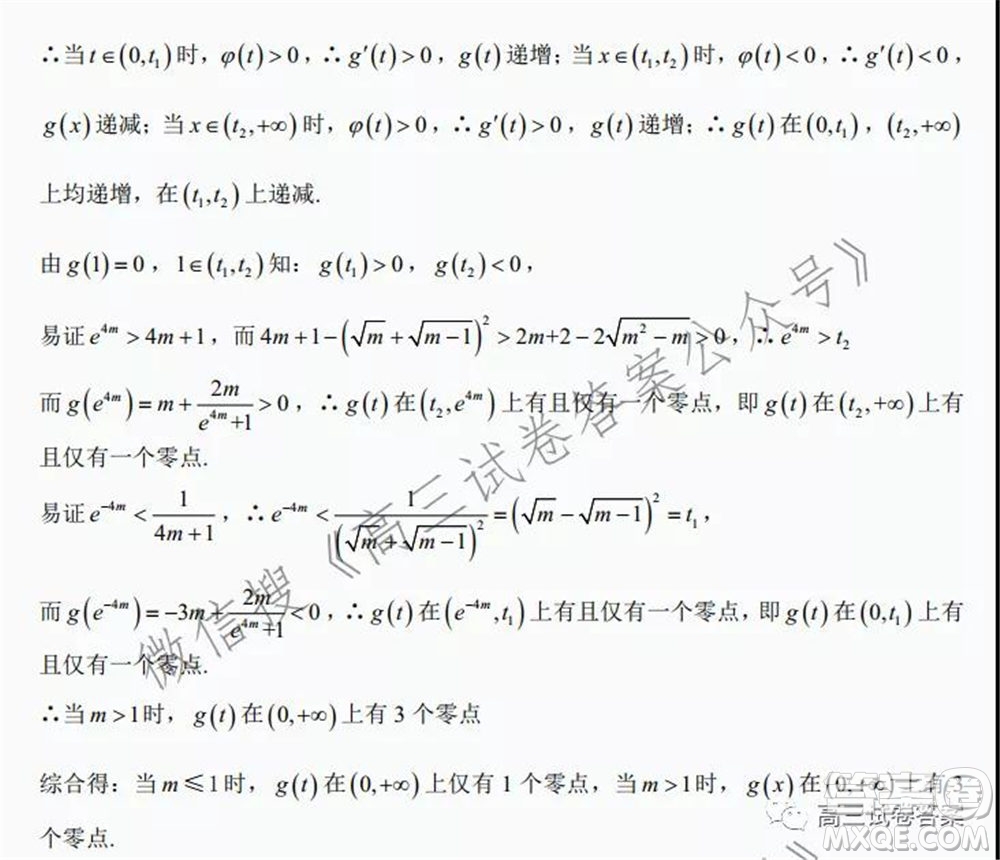 ∴当 t∈(0,t₁) 时，φ(t)>0，∴g′(t)>0，g(t) 递增；当 x∈(t₁,t₂) 时，φ(t)<0，∴g′(t)<0，
g(x) 递减；当 x∈(t₂,+∞) 时，φ(t)>0，∴g′(t)>0，g(t) 递增；∴g(t) 在 (0,t₁)，(t₂,+∞)
上均递增，在 (t₁,t₂) 上递减.
由 g(1)=0，1∈(t₁,t₂) 知：g(t₁)>0，g(t₂)<0，
易证 e^{4m}>4m+1，而 4m+1-(√m+√(m-1))²>2m+2-2√(m²-m)>0，∴e^{4m}>t₂
而 g(e^{4m})=m+2m/(e^{4m}+1)>0，∴g(t) 在 (t₂,e^{4m}) 上有且仅有一个零点，即 g(t) 在 (t₂,+∞) 上有
且仅有一个零点.
易证 e^{-4m}<1/(4m+1)，∴e^{-4m}<1/(√m+√(m-1))²=(√m-√(m-1))²=t₁，
而 g(e^{-4m})=-3m+2m/(e^{4m}+1)<0，∴g(t) 在 (e^{-4m},t₁) 上有且仅有一个零点，即 g(t) 在 (0,t₁) 上有
且仅有一个零点.
∴当 m>1 时，g(t) 在 (0,+∞) 上有 3 个零点
综合得：当 m≤1 时，g(t) 在 (0,+∞) 上仅有 1 个零点，当 m>1 时，g(x) 在 (0,+∞) 上有 3
个零点.
微信搜《高三试卷答案公众号》
高三试卷答案
答案圈
MXQE.COM